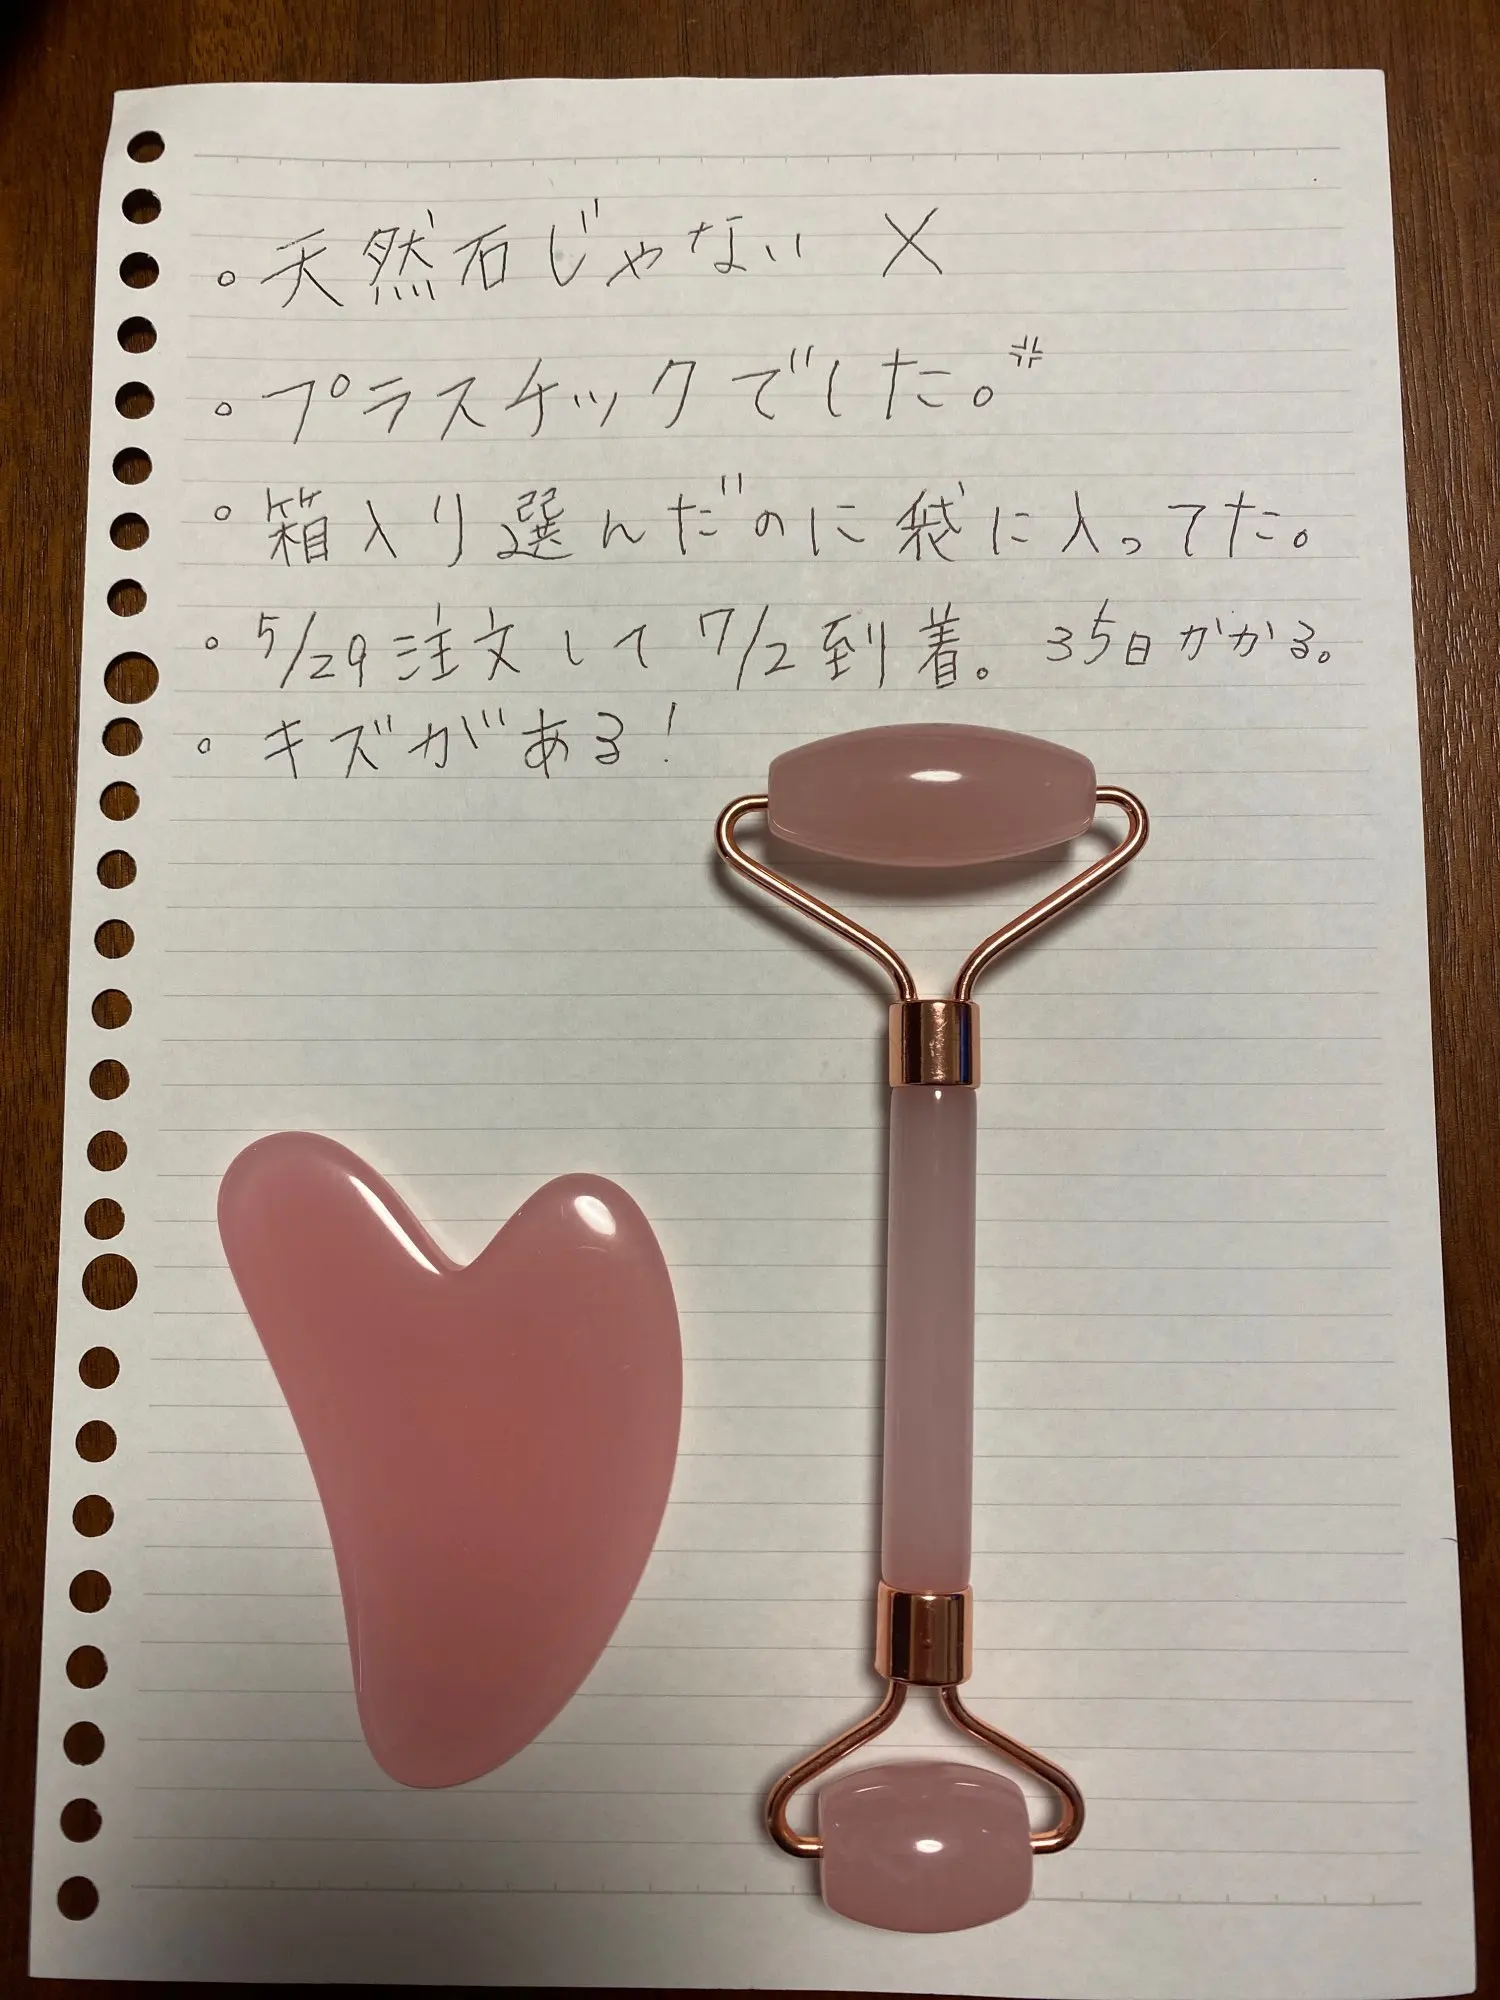 。天然石じゃない ×
。プラスチックでした。
。箱入り選んだのに袋に入ってた。
。5/29注文して7/2到着。35日かかる。
。キズがある!